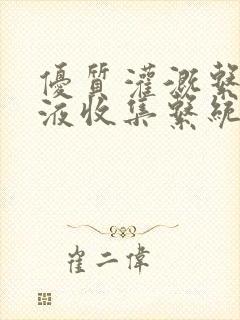 優質灌溉繫
液收集繫統
崔二偉